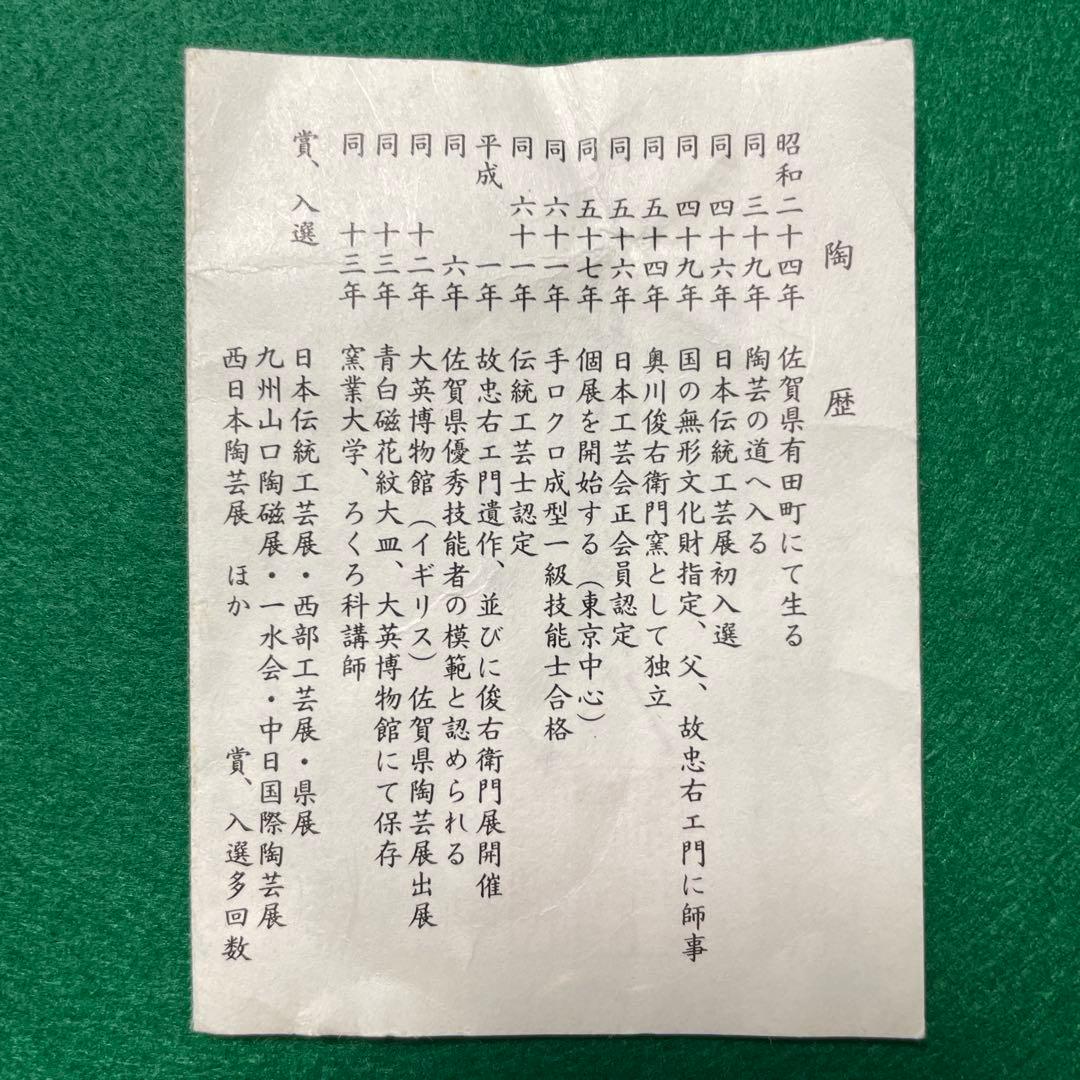 陶歴
昭和二十四年 佐賀県有田町にて生る
同 三十九年 陶芸の道へ入る
同 四十六年 日本伝統工芸展初入選
同 四十九年 国の無形文化財指定、父、故忠右エ門に師事
同 五十四年 奥川俊右衛門窯として独立
同 五十六年 日本工芸会正会員認定
同 五十七年 個展を開始する（東京中心）
同 六十一年 手ロクロ成型一級技能士合格
同 六十一年 伝統工芸士認定
平成 一年 故忠右エ門遺作、並びに俊右衛門展開催
同 六年 佐賀県優秀技能者の模範と認められる
同 十二年 大英博物館（イギリス）佐賀県陶芸展出展
同 十三年 青白磁花紋大皿、大英博物館にて保存
同 十三年 窯業大学、ろくろ科講師
賞、入選 日本伝統工芸展・西部工芸展・県展
九州山口陶磁展・一水会・中日国際陶芸展
西日本陶芸展 ほか 賞、入選多回数